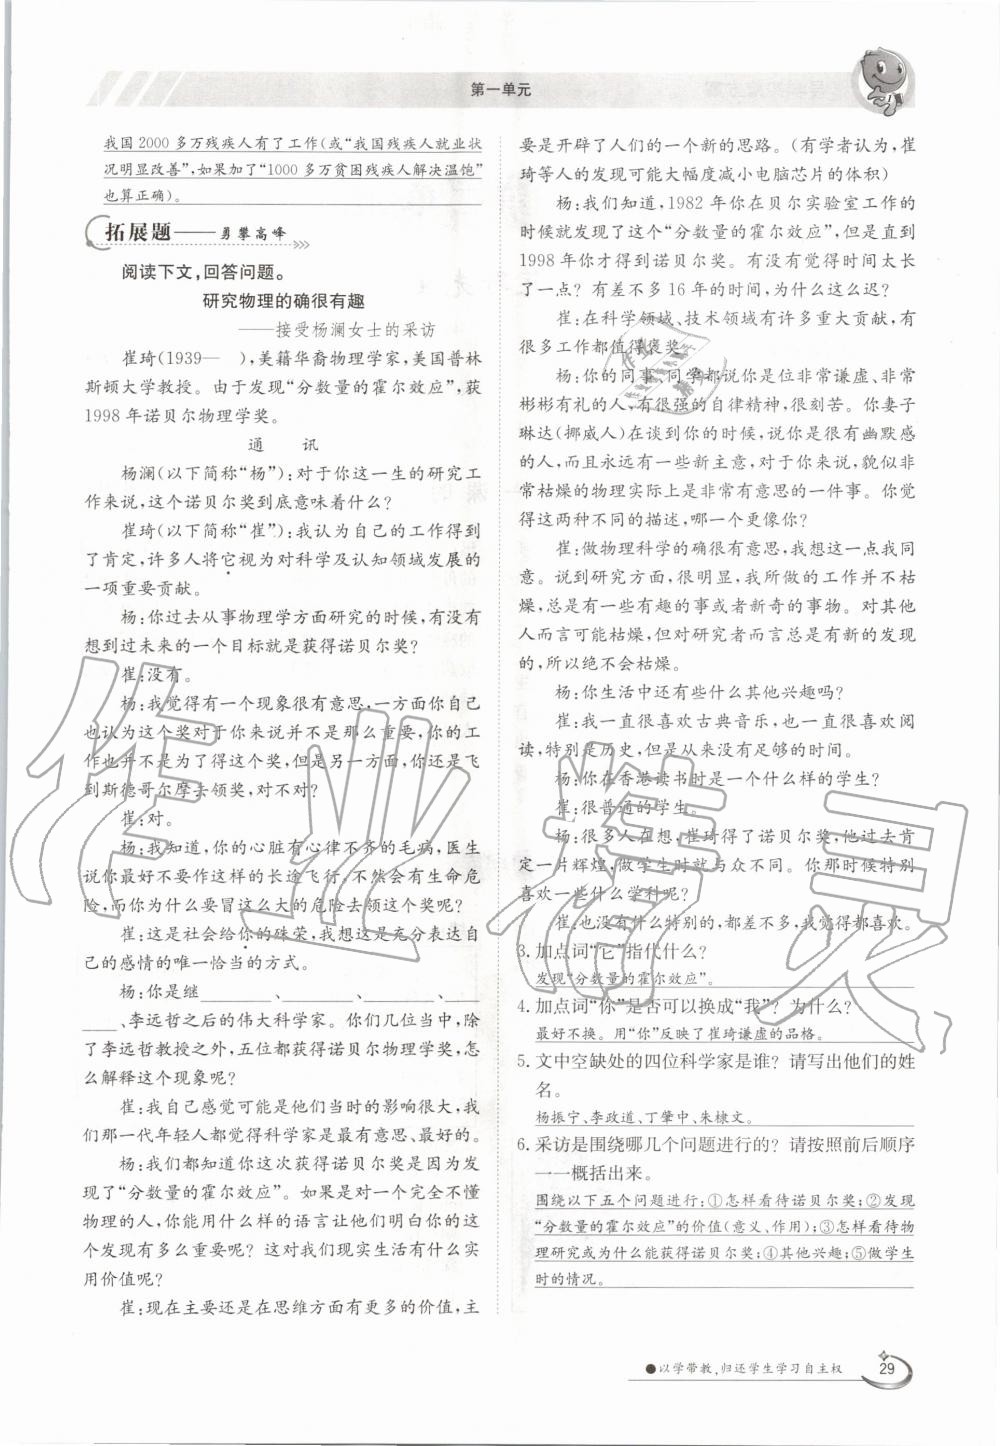 第一单元
我国2000多万残疾人有了工作(或“我国残疾人就业状
况明显改善”,如果加了“1000多万贫困残疾人解决温饱”
也算正确)。
拓展题——勇攀高峰
阅读下文,回答问题。
研究物理的确很有趣
——接受杨澜女士的采访
崔琦(1939— ),美籍华裔物理学家,美国普林
斯顿大学教授。由于发现“分数量的霍尔效应”,获
1998年诺贝尔物理学奖。
通 讯
杨澜(以下简称“杨”):对于你这一生的研究工
作来说,这个诺贝尔奖到底意味着什么?
崔琦(以下简称“崔”):我认为自己的工作得到
了肯定,许多人将它视为对科学及认知领域发展的
一项重要贡献。
杨:你过去从事物理学方面研究的时候,有没有
想到过未来的一个目标就是获得诺贝尔奖?
崔:没有。
杨:我觉得有一个现象很有意思,一方面你自己
也认为这个奖对于你来说并不是那么重要,你的工
作也并不是为了得这个奖,但另一方面,你还是飞
到斯德哥尔摩去领奖,对不对?
崔:对。
杨:我知道,你的心脏有心律不齐的毛病,医生
说你最好不要作这样的长途飞行,不然会有生命危
险,而你为什么要冒这么大的危险去领这个奖呢?
崔:这是社会给你的殊荣,我想这是充分表达自
己的感情的唯一恰当的方式。
杨:你是继________、________、________、____
____、李远哲之后的伟大科学家。你们几位当中,除
了李远哲教授之外,五位都获得诺贝尔物理学奖,怎
么解释这个现象呢?
崔:我自己感觉可能是他们当时的影响很大,我
们那一代年轻人都觉得科学家是最有意思、最好的。
杨:我们都知道你这次获得诺贝尔奖是因为发
现了“分数量的霍尔效应”。如果是对一个完全不懂
物理的人,你能用什么样的语言让他们明白你的这
个发现有多么重要呢?这对我们现实生活有什么实
用价值呢?
崔:现在主要还是在思维方面有更多的价值,主
要是开辟了人们的一个新的思路。(有学者认为,崔
琦等人的发现可能大幅度减小电脑芯片的体积)
杨:我们知道,1982年你在贝尔实验室工作的
时候就发现了这个“分数量的霍尔效应”,但是直到
1998年你才得到诺贝尔奖。有没有觉得时间太长
了一点?有差不多16年的时间,为什么这么迟?
崔:在科学领域、技术领域有许多重大贡献,有
很多工作都值得褒奖。
杨:你的同事、同学都说你是位非常谦虚、非常
彬彬有礼的人,有很强的自律精神,很刻苦。你妻子
琳达(挪威人)在谈到你的时候,说你是很有幽默感
的人,而且永远有一些新主意,对于你来说,貌似非
常枯燥的物理实际上是非常有意思的一件事。你觉
得这两种不同的描述,哪一个更像你?
崔:做物理科学的确很有意思,我想这一点我同
意。说到研究方面,很明显,我所做的工作并不枯
燥,总是有一些有趣的事或者新奇的事物。对其他
人而言可能枯燥,但对研究者而言总是有新的发现
的,所以绝不会枯燥。
杨:你生活中还有些什么其他兴趣吗?
崔:我一直很喜欢古典音乐,也一直很喜欢阅
读,特别是历史,但是从来没有足够的时间。
杨:你在香港读书时是一个什么样的学生?
崔:很普通的学生。
杨:很多人在想,崔琦得了诺贝尔奖,他过去肯
定一片辉煌,做学生时就与众不同。你那时候特别
喜欢一些什么学科呢?
崔:也没有什么特别的,都差不多,我觉得都喜欢。
3. 加点词“它”指代什么?
发现“分数量的霍尔效应”。
4. 加点词“你”是否可以换成“我”?为什么?
最好不换。用“你”反映了崔琦谦虚的品格。
5. 文中空缺处的四位科学家是谁?请写出他们的姓
名。
杨振宁、李政道、丁肇中、朱棣文。
6. 采访是围绕哪几个问题进行的?请按照前后顺序
一一概括出来。
围绕以下五个问题进行:①怎样看待诺贝尔奖;②发现
“分数量的霍尔效应”的价值(意义、作用);③怎样看待物
理研究或为什么能获得诺贝尔奖;④其他兴趣;⑤做学生
时的情况。
●以学带教,归还学生学习自主权
29
作业精灵